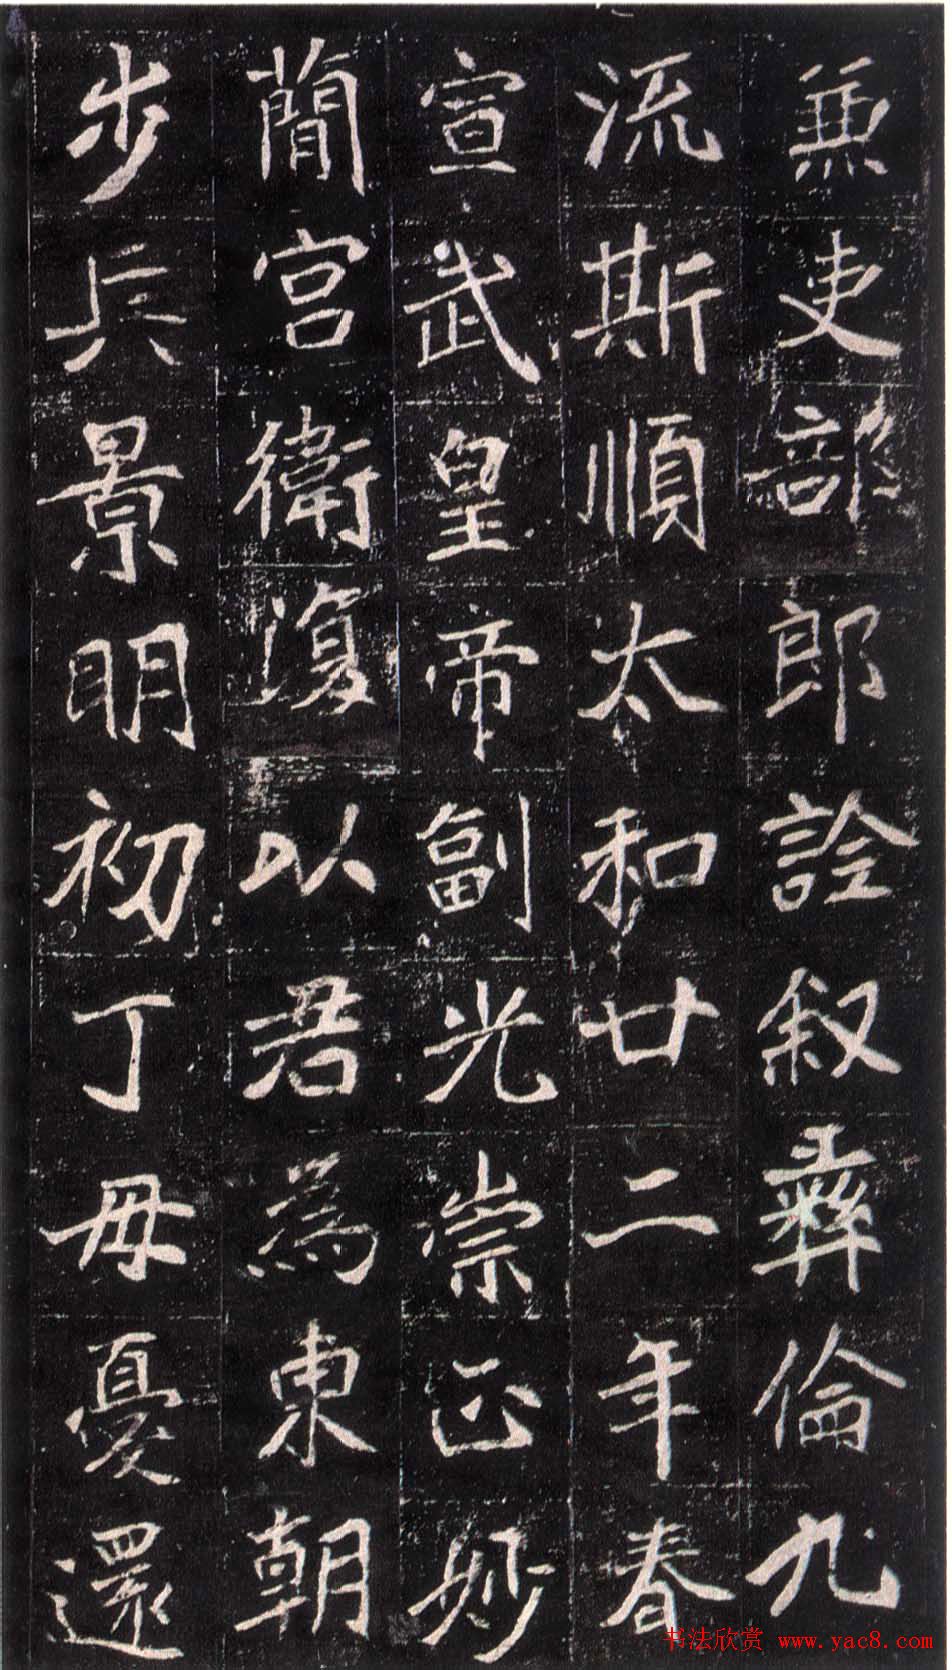 兼吏部郎詮叙彝倫九
流斯順太和廿二年春
宣武皇帝副光崇正妙
簡宮衛復以君為東朝
步兵景明初丁母憂還
书法欣赏 www.yac8.com